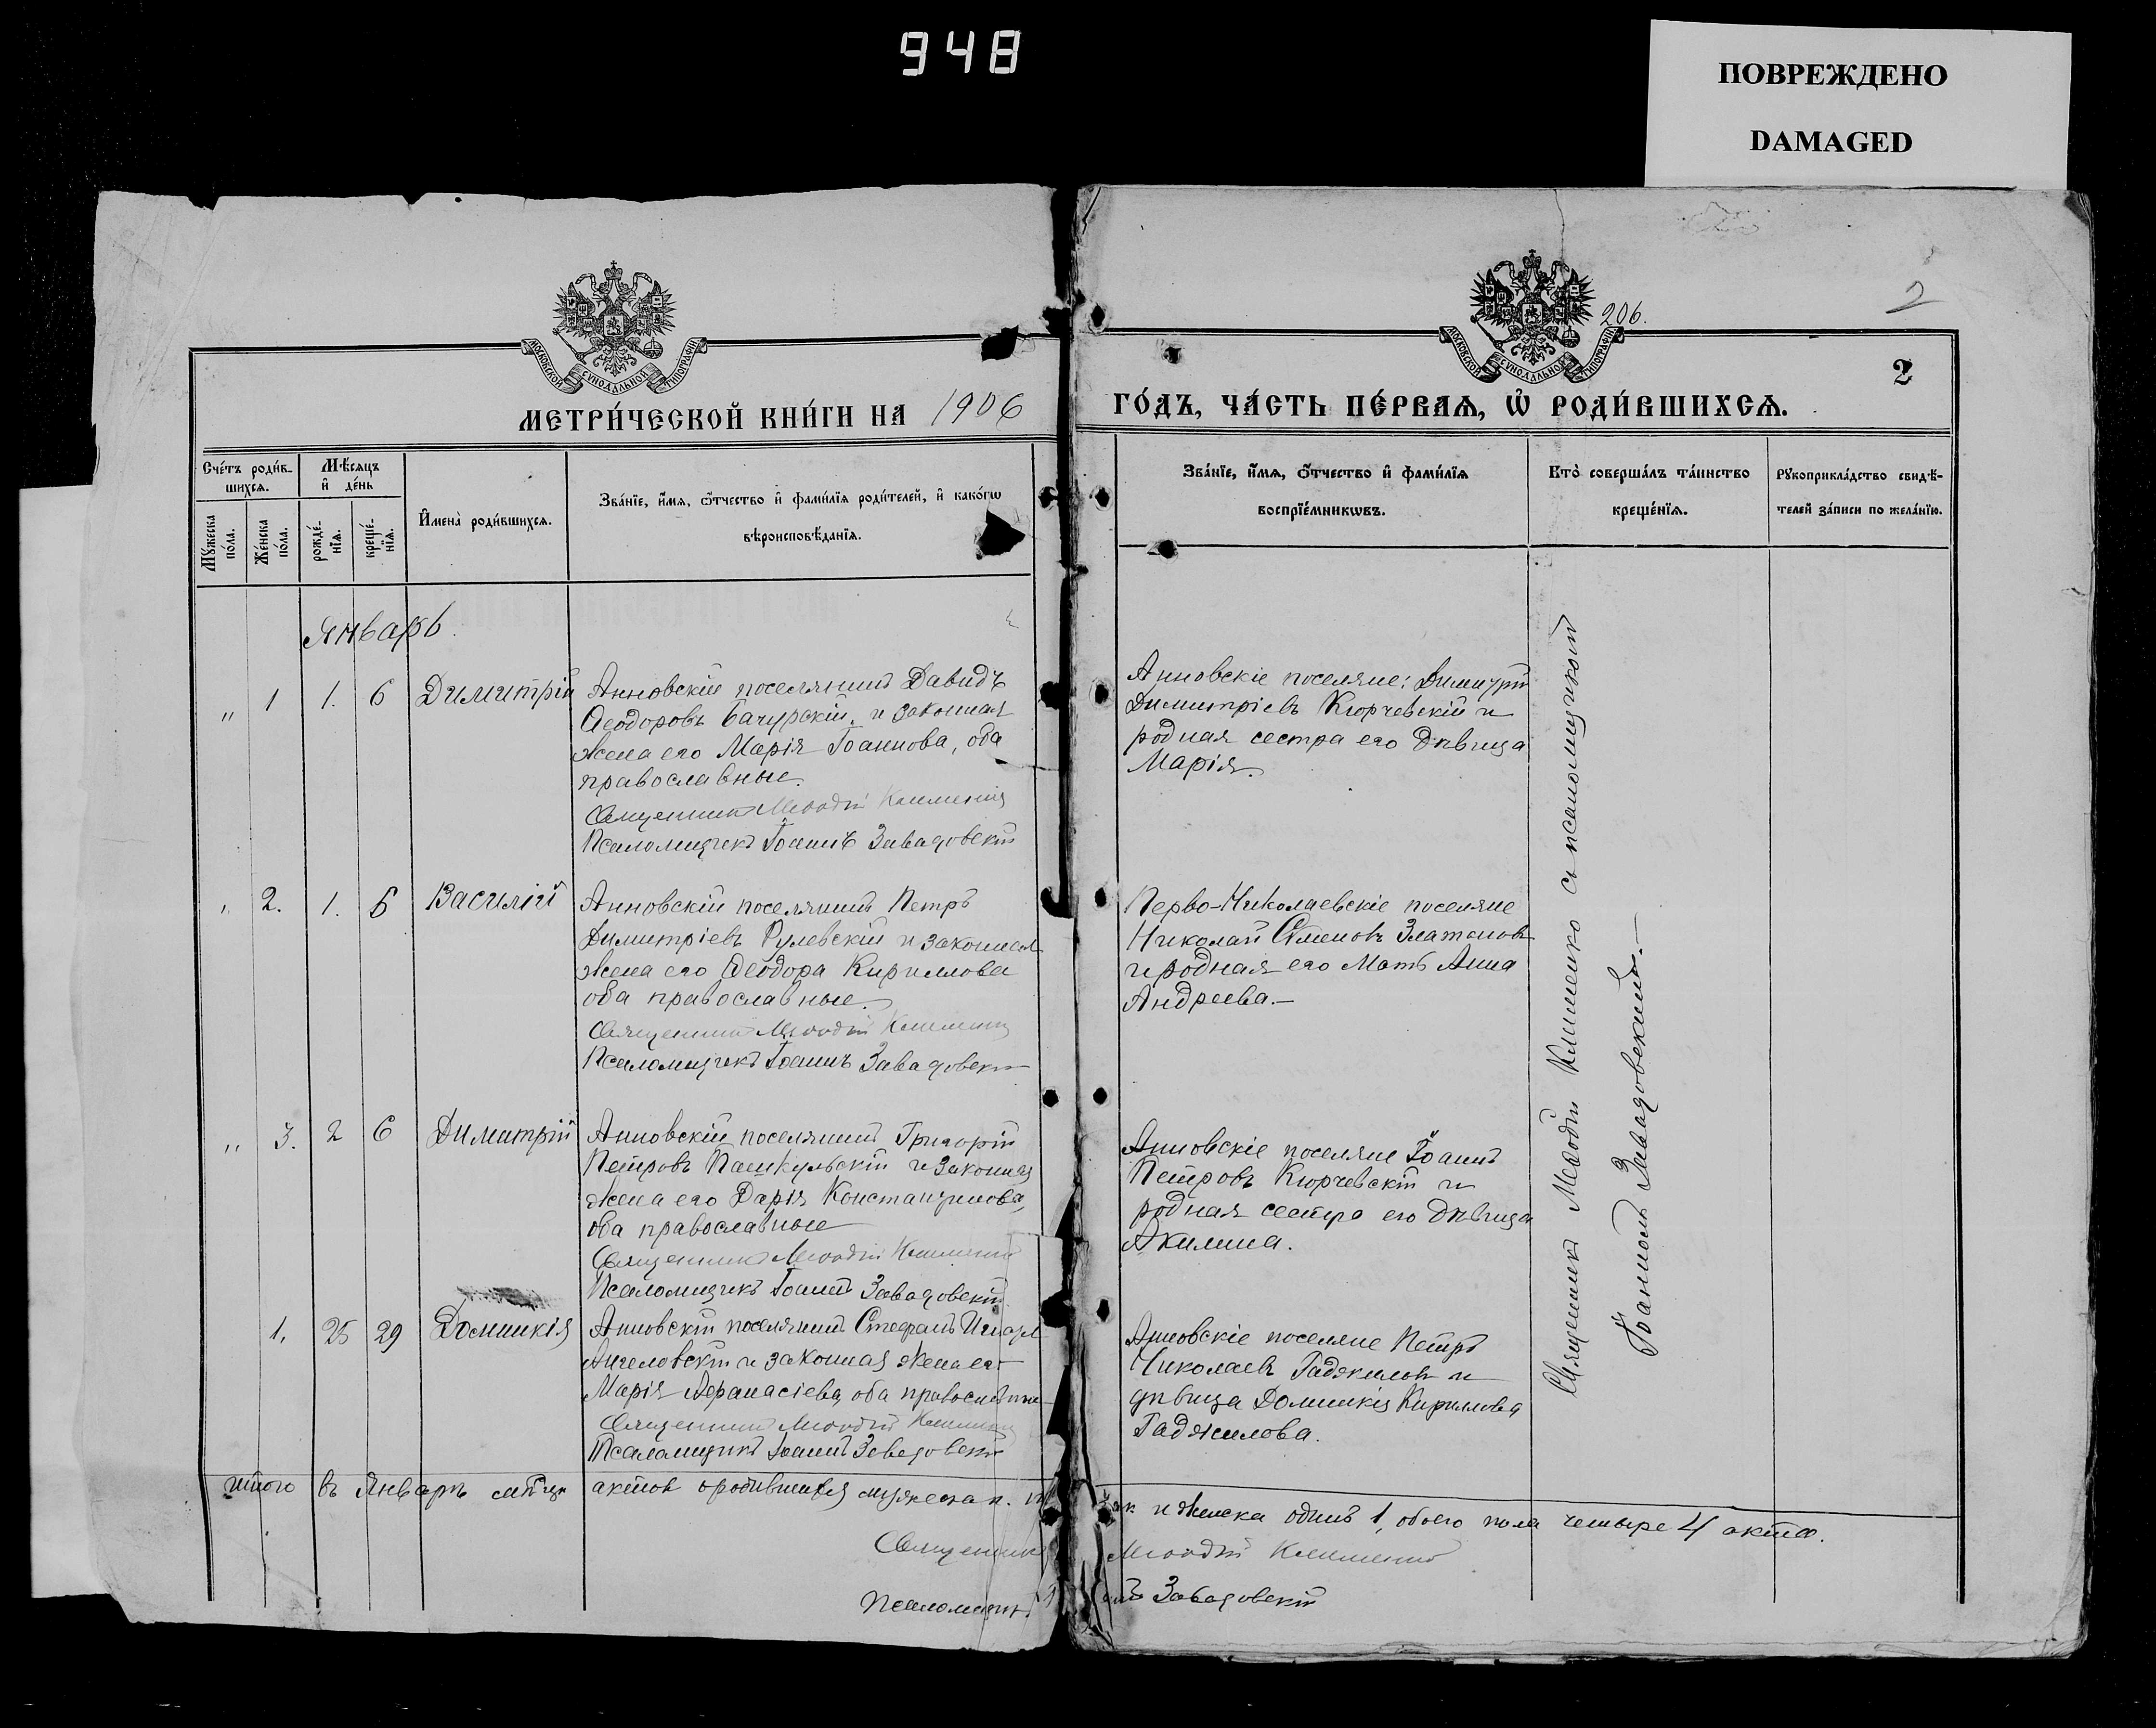 948
ПОВРЕЖДЕНО
DAMAGED
206.
2
2
МОСКОВСКОЙ СѴНОДАЛЬНОЙ ТИПОГРАФІИ
МОСКОВСКОЙ СѴНОДАЛЬНОЙ ТИПОГРАФІИ
МЕТРИ́ЧЕСКОЙ КНИ́ГИ НА 1906
ГО́ДЪ, ЧА́СТЬ ПЕ́РВАЯ, Ѡ РОДИ́ВШИХСЯ.
Сче́тъ роди́в-
шихся.
Мѣ́сяцъ
и де́нь
Мꙋ́жеска
по́ла.
Же́нска
по́ла.
рожде́-
нїя.
креще́-
нїя.
Имена̀ роди́вшихся.
Зва́нїе, и́мя, ѻ́тчество и фами́лїя роди́телей, и како́гѡ
вѣроисповѣ́данїя.
Зва́нїе, и́мя, ѻ́тчество и фами́лїя
воспрїе́мникѡвъ.
Кто̀ соверша́лъ та́инство
креще́нїя.
Рꙋкоприкла́дство свидѣ́-
телей за́писи по жела́нїю.
Январь.
„ 1 1. 6 Димитрій
Анновскій поселянинъ Давидъ
Ѳеодоровъ Бачурскій, и законная
жена его Марія Іоаннова, оба
православные.
Священникъ Меѳодій Клименко
Псаломщикъ Іоаннъ Завадовскій
Анновскіе поселяне: Димитрій
Димитріевъ Кюрчевскій и
родная сестра его дѣвица
Марія.
„ 2. 1. 6 Василій
Анновскій поселянинъ Петръ
Димитріевъ Рулевскій и законная
жена его Ѳеодора Кириллова
оба православные.
Священникъ Меѳодій Клименко
Псаломщикъ Іоаннъ Завадовскій
Перво-Николаевскіе поселяне
Николай Златановъ
и родная его Мать Анна
Андреева.—
„ 3. 2 6 Димитрій
Анновскій поселянинъ Григорій
Петровъ Пашкульскій и законная
жена его Дарія Константинова,
оба православные
Священникъ Меѳодій Клименко
Псаломщикъ Іоаннъ Завадовскій
Анновскіе поселяне Іоаннъ
Петровъ Кюрчевскій и
родная сестра его дѣвица
Акилина.
1. 25 29 Домникія
Анновскій поселянинъ Стефанъ
Ангеловскій и законная жена его
Марія Аѳанасіева, оба православные
Священникъ Меѳодій Клименко
Псаломщикъ Іоаннъ Завадовскій
Анновскіе поселяне Петръ
Николаевъ Гаджиловъ и
дѣвица Домникія Кириллова
Гаджилова.
Священникъ Меѳодій Клименко съ псаломщикомъ
Іоанномъ Завадовскимъ.—
Итого въ Январѣ мѣсяцѣ актовъ о родившихся мужеска п. и женска одинъ 1, обоего пола четыре 4 акта.
Священникъ Меѳодій Клименко
Псаломщикъ Завадовскій